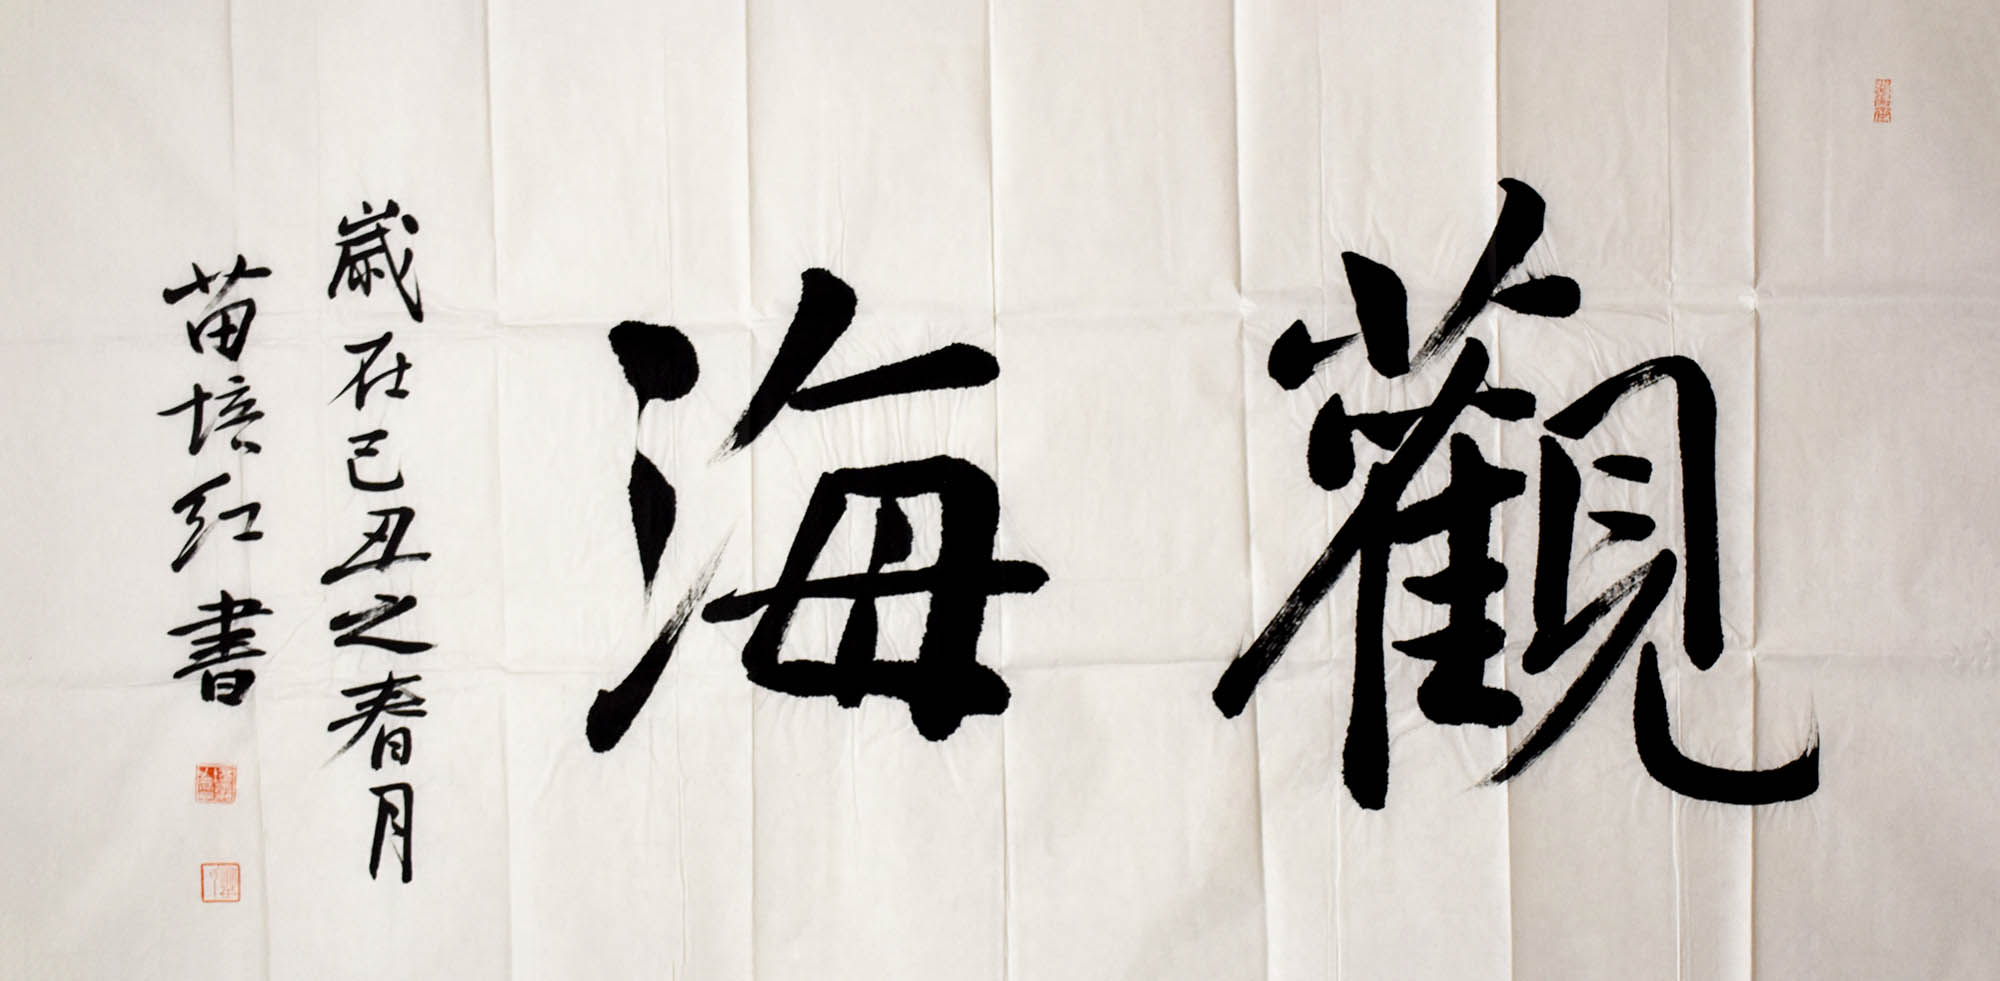 觀海
歲在己丑之春月
苗培紅書